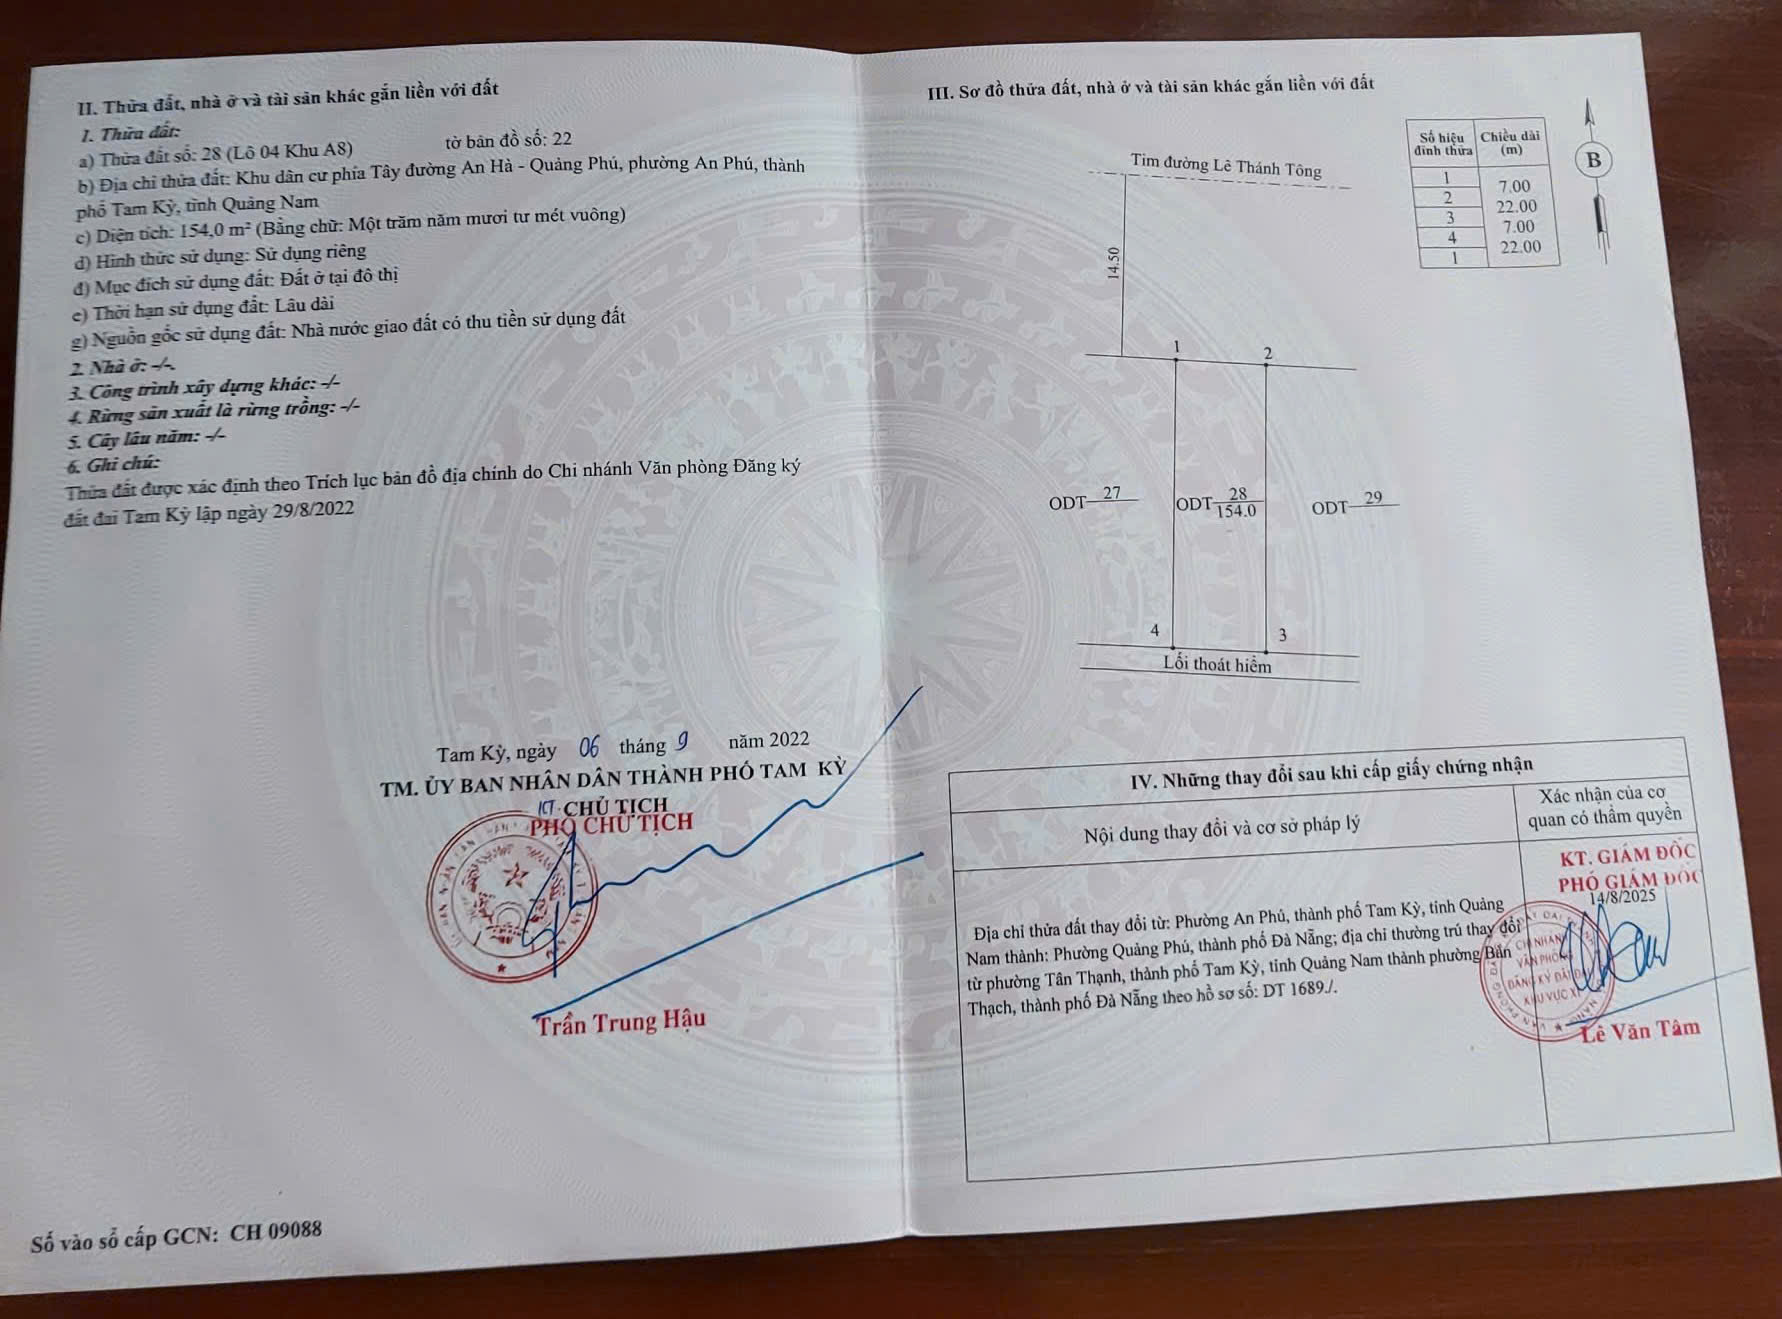 II. Thửa đất, nhà ở và tài sản khác gắn liền với đất
1. Thửa đất:
a) Thửa đất số: 28 (Lô 04 Khu A8) tờ bản đồ số: 22
b) Địa chỉ thửa đất: Khu dân cư phía Tây đường An Hà - Quảng Phú, phường An Phú, thành
phố Tam Kỳ, tỉnh Quảng Nam
c) Diện tích: 154,0 m² (Bằng chữ: Một trăm năm mươi tư mét vuông)
d) Hình thức sử dụng: Sử dụng riêng
đ) Mục đích sử dụng đất: Đất ở tại đô thị
e) Thời hạn sử dụng đất: Lâu dài
g) Nguồn gốc sử dụng đất: Nhà nước giao đất có thu tiền sử dụng đất
2. Nhà ở: -/-.
3. Công trình xây dựng khác: -/-
4. Rừng sản xuất là rừng trồng: -/-
5. Cây lâu năm: -/-
6. Ghi chú:
Thửa đất được xác định theo Trích lục bản đồ địa chính do Chi nhánh Văn phòng Đăng ký
đất đai Tam Kỳ lập ngày 29/8/2022
Tam Kỳ, ngày 06 tháng 9 năm 2022
TM. ỦY BAN NHÂN DÂN THÀNH PHỐ TAM KỲ
KT. CHỦ TỊCH
PHÓ CHỦ TỊCH
Trần Trung Hậu
Số vào sổ cấp GCN: CH 09088
III. Sơ đồ thửa đất, nhà ở và tài sản khác gắn liền với đất
Số hiệu đỉnh thửa Chiều dài (m)
1
7.00
2
22.00
3
7.00
4
22.00
1
B
Tim đường Lê Thánh Tông
14.50
1 2
ODT 27
ODT 28
154.0
ODT 29
4 3
Lối thoát hiểm
IV. Những thay đổi sau khi cấp giấy chứng nhận
Nội dung thay đổi và cơ sở pháp lý
Xác nhận của cơ
quan có thẩm quyền
Địa chỉ thửa đất thay đổi từ: Phường An Phú, thành phố Tam Kỳ, tỉnh Quảng
Nam thành: Phường Quảng Phú, thành phố Đà Nẵng; địa chỉ thường trú thay đổi
từ phường Tân Thạnh, thành phố Tam Kỳ, tỉnh Quảng Nam thành phường Bàn
Thạch, thành phố Đà Nẵng theo hồ sơ số: DT 1689./.
KT. GIÁM ĐỐC
PHÓ GIÁM ĐỐC
14/8/2025
CHI NHÁNH
VĂN PHÒNG
ĐĂNG KÝ ĐẤT ĐAI
KHU VỰC
Lê Văn Tâm